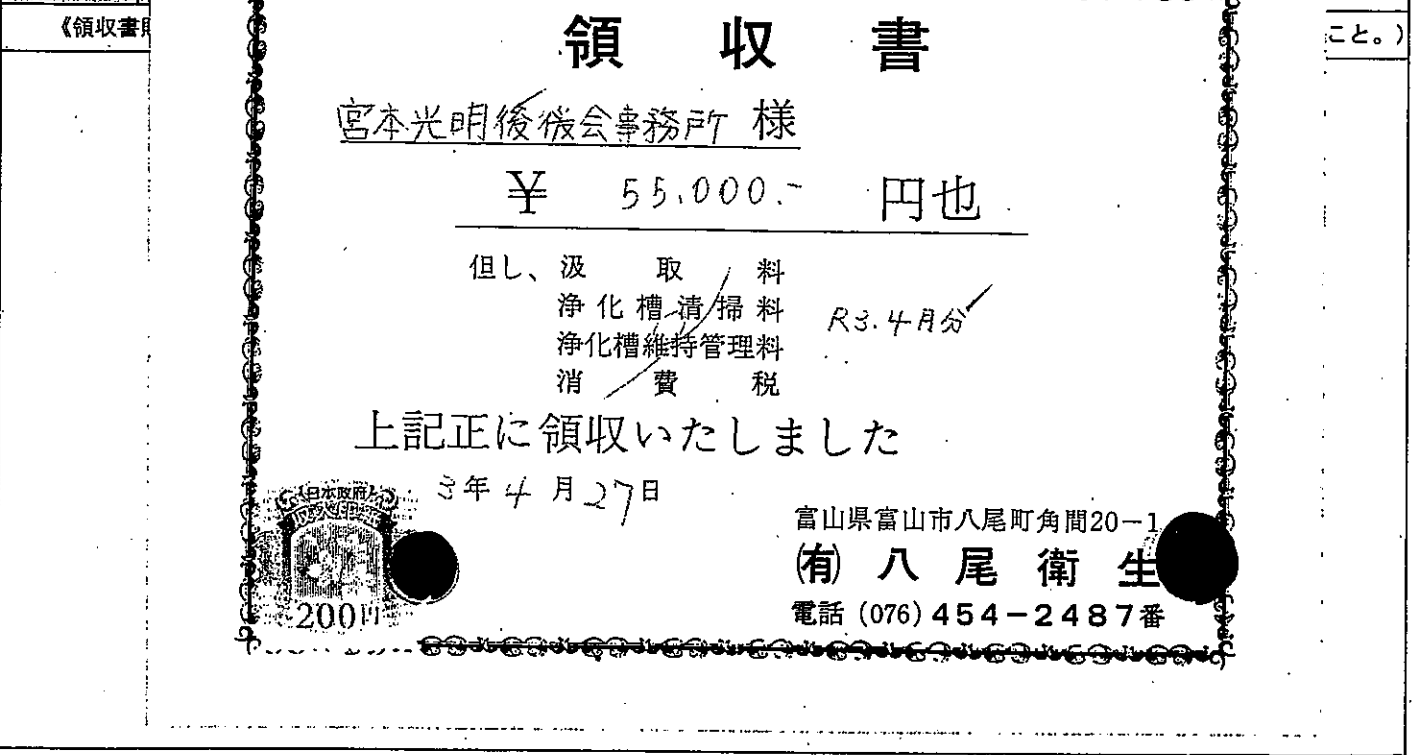 《領収書貼
こと。)
領収書
宮本光明後援会事務所 様
¥ 55,000.- 円也
但し、汲取料
浄化槽清掃料
浄化槽維持管理料
消費税
R3.4月分
上記正に領収いたしました
3年4月27日
日本政府
200円
富山県富山市八尾町角間20-1
㈲八尾衛生
電話(076)454-2487番